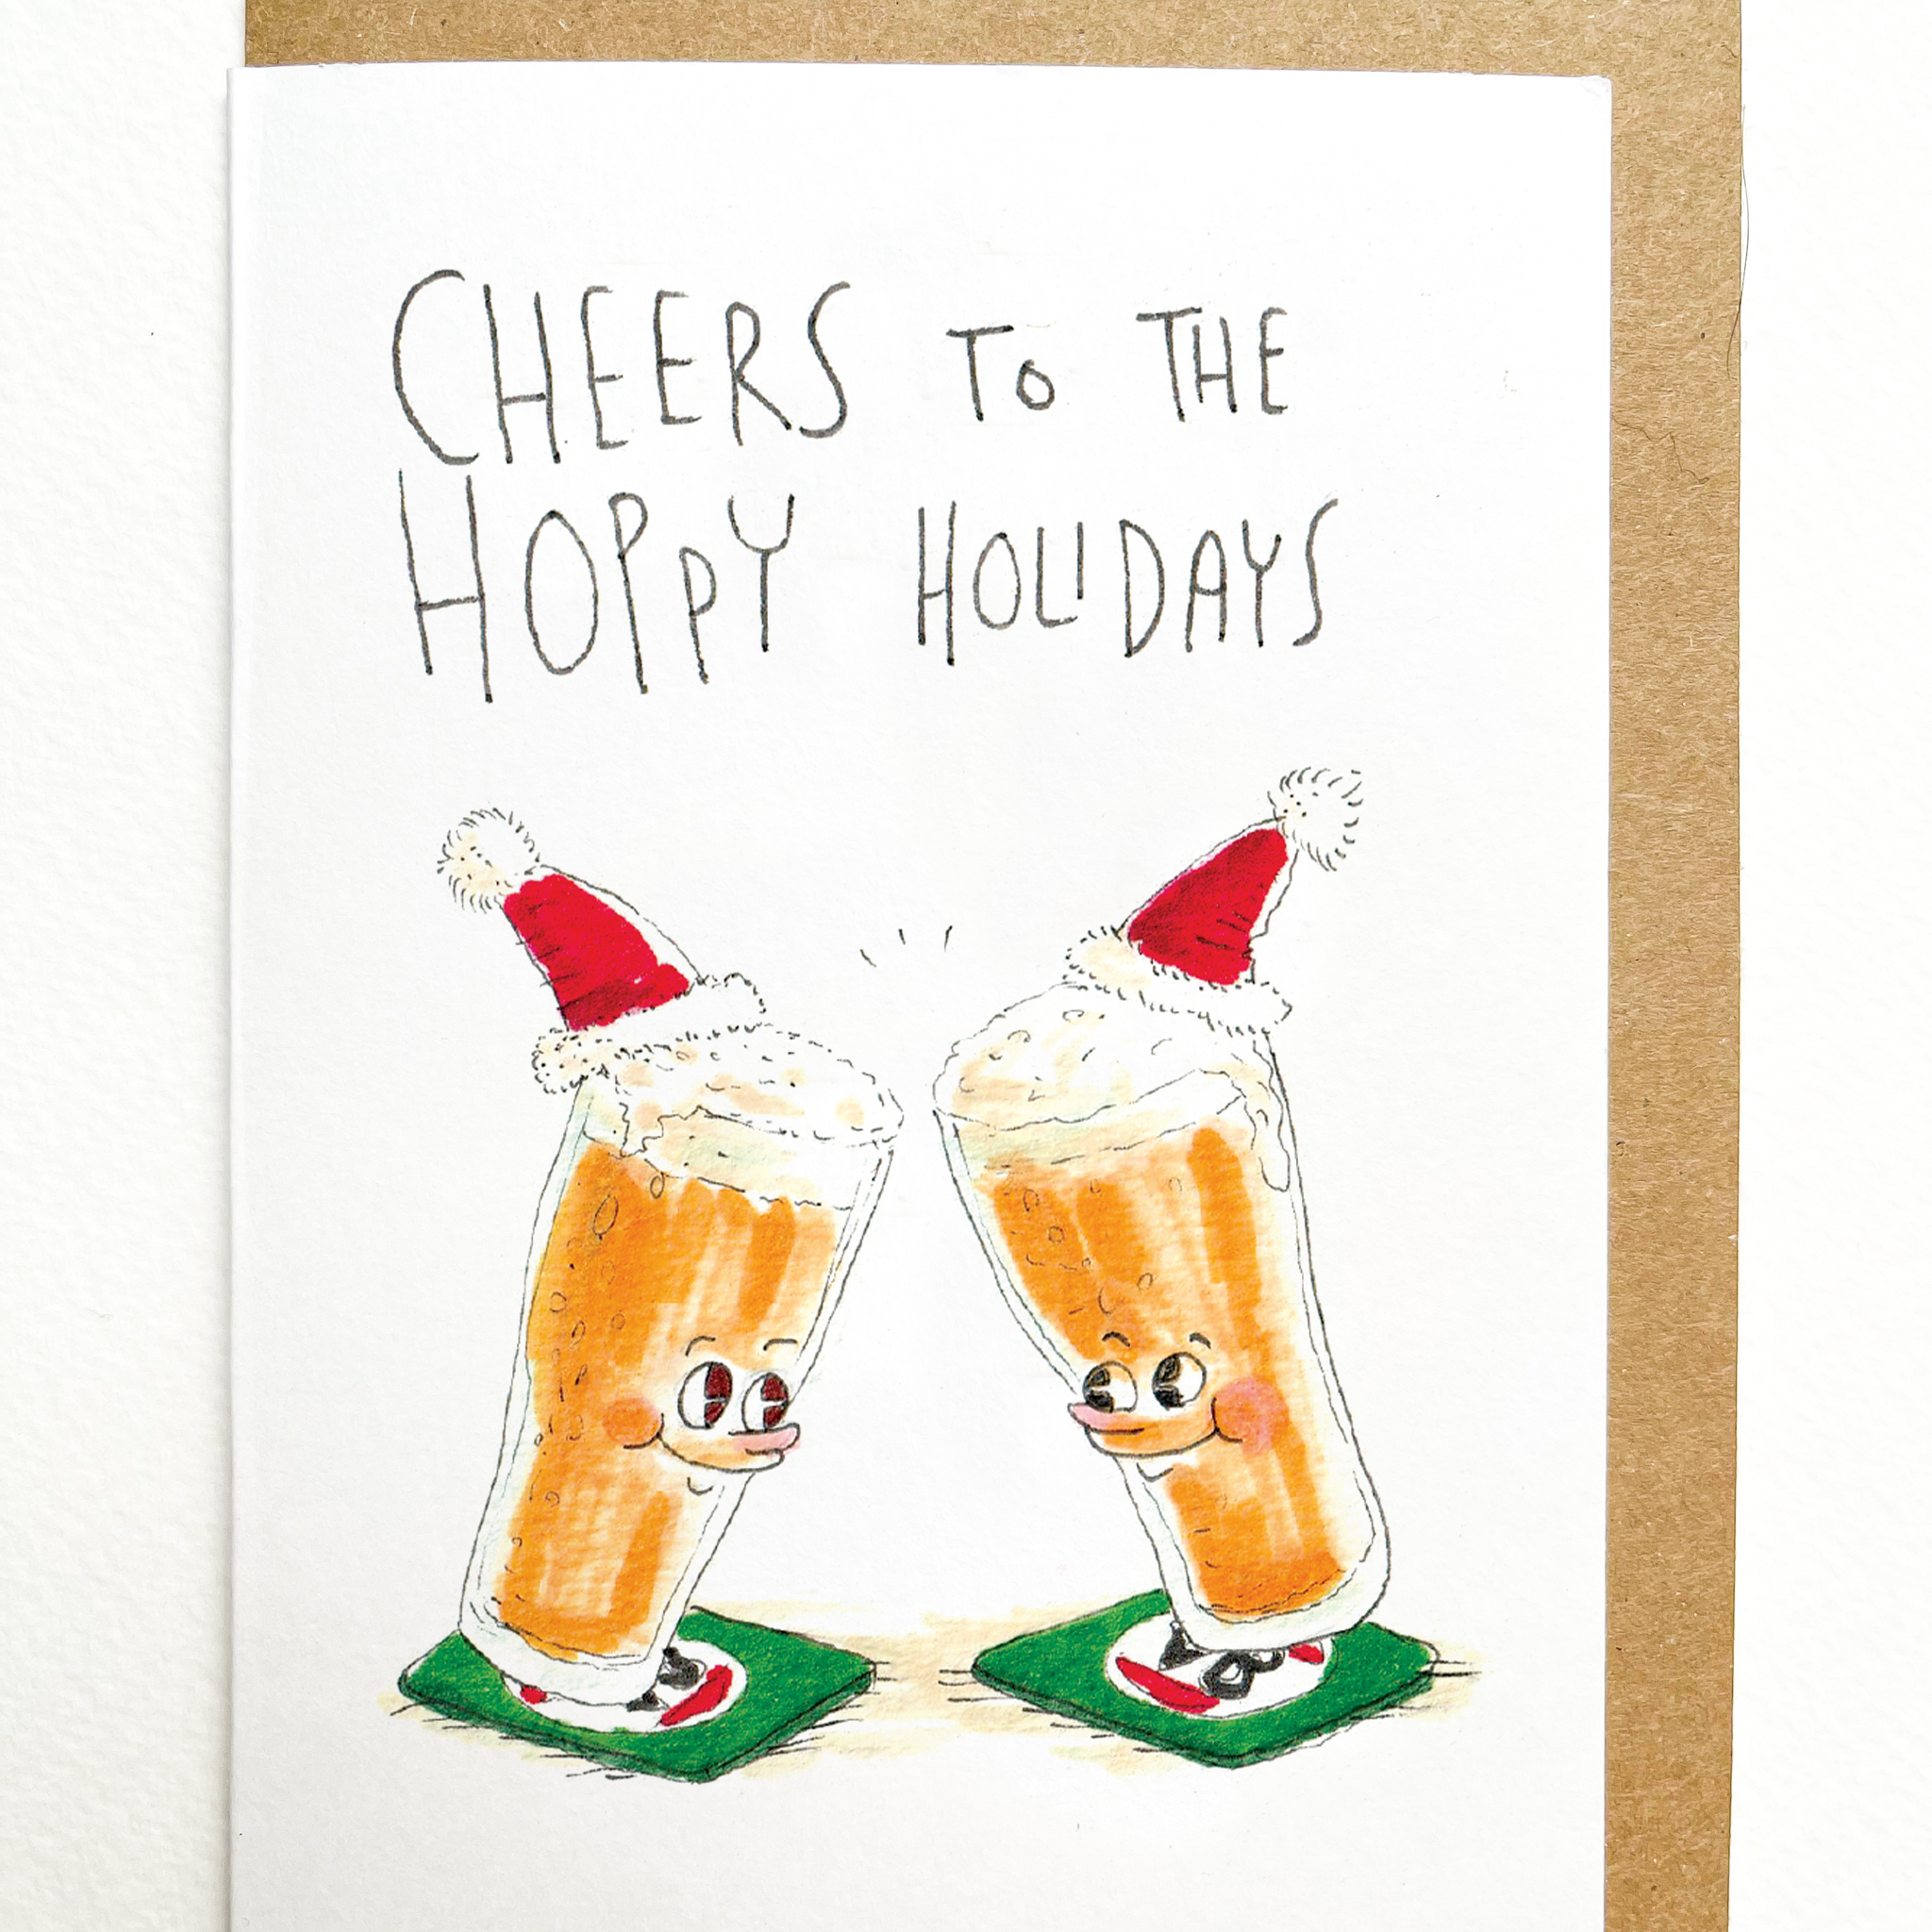 CHEERS TO THE
HOPPY HOLIDAYS